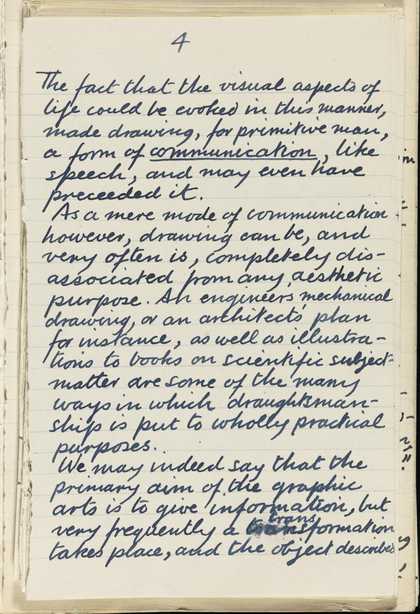 4
The fact that the visual aspects of
life could be evoked in this manner,
made drawing, for primitive man,
a form of communication, like
speech, and may even have
preceeded it.
As a mere mode of communication
however, drawing can be, and
very often is, completely dis-
associated from any aesthetic
purpose. An engineers mechanical
drawing, or an architects' plan
for instance, as well as illustra-
tions to books on scientific subject-
matter are some of the many
ways in which draughtsman-
ship is put to wholly practical
purposes.
We may indeed say that the
primary aim of the graphic
arts is to give information, but
very frequently a transformation
takes place, and the object described